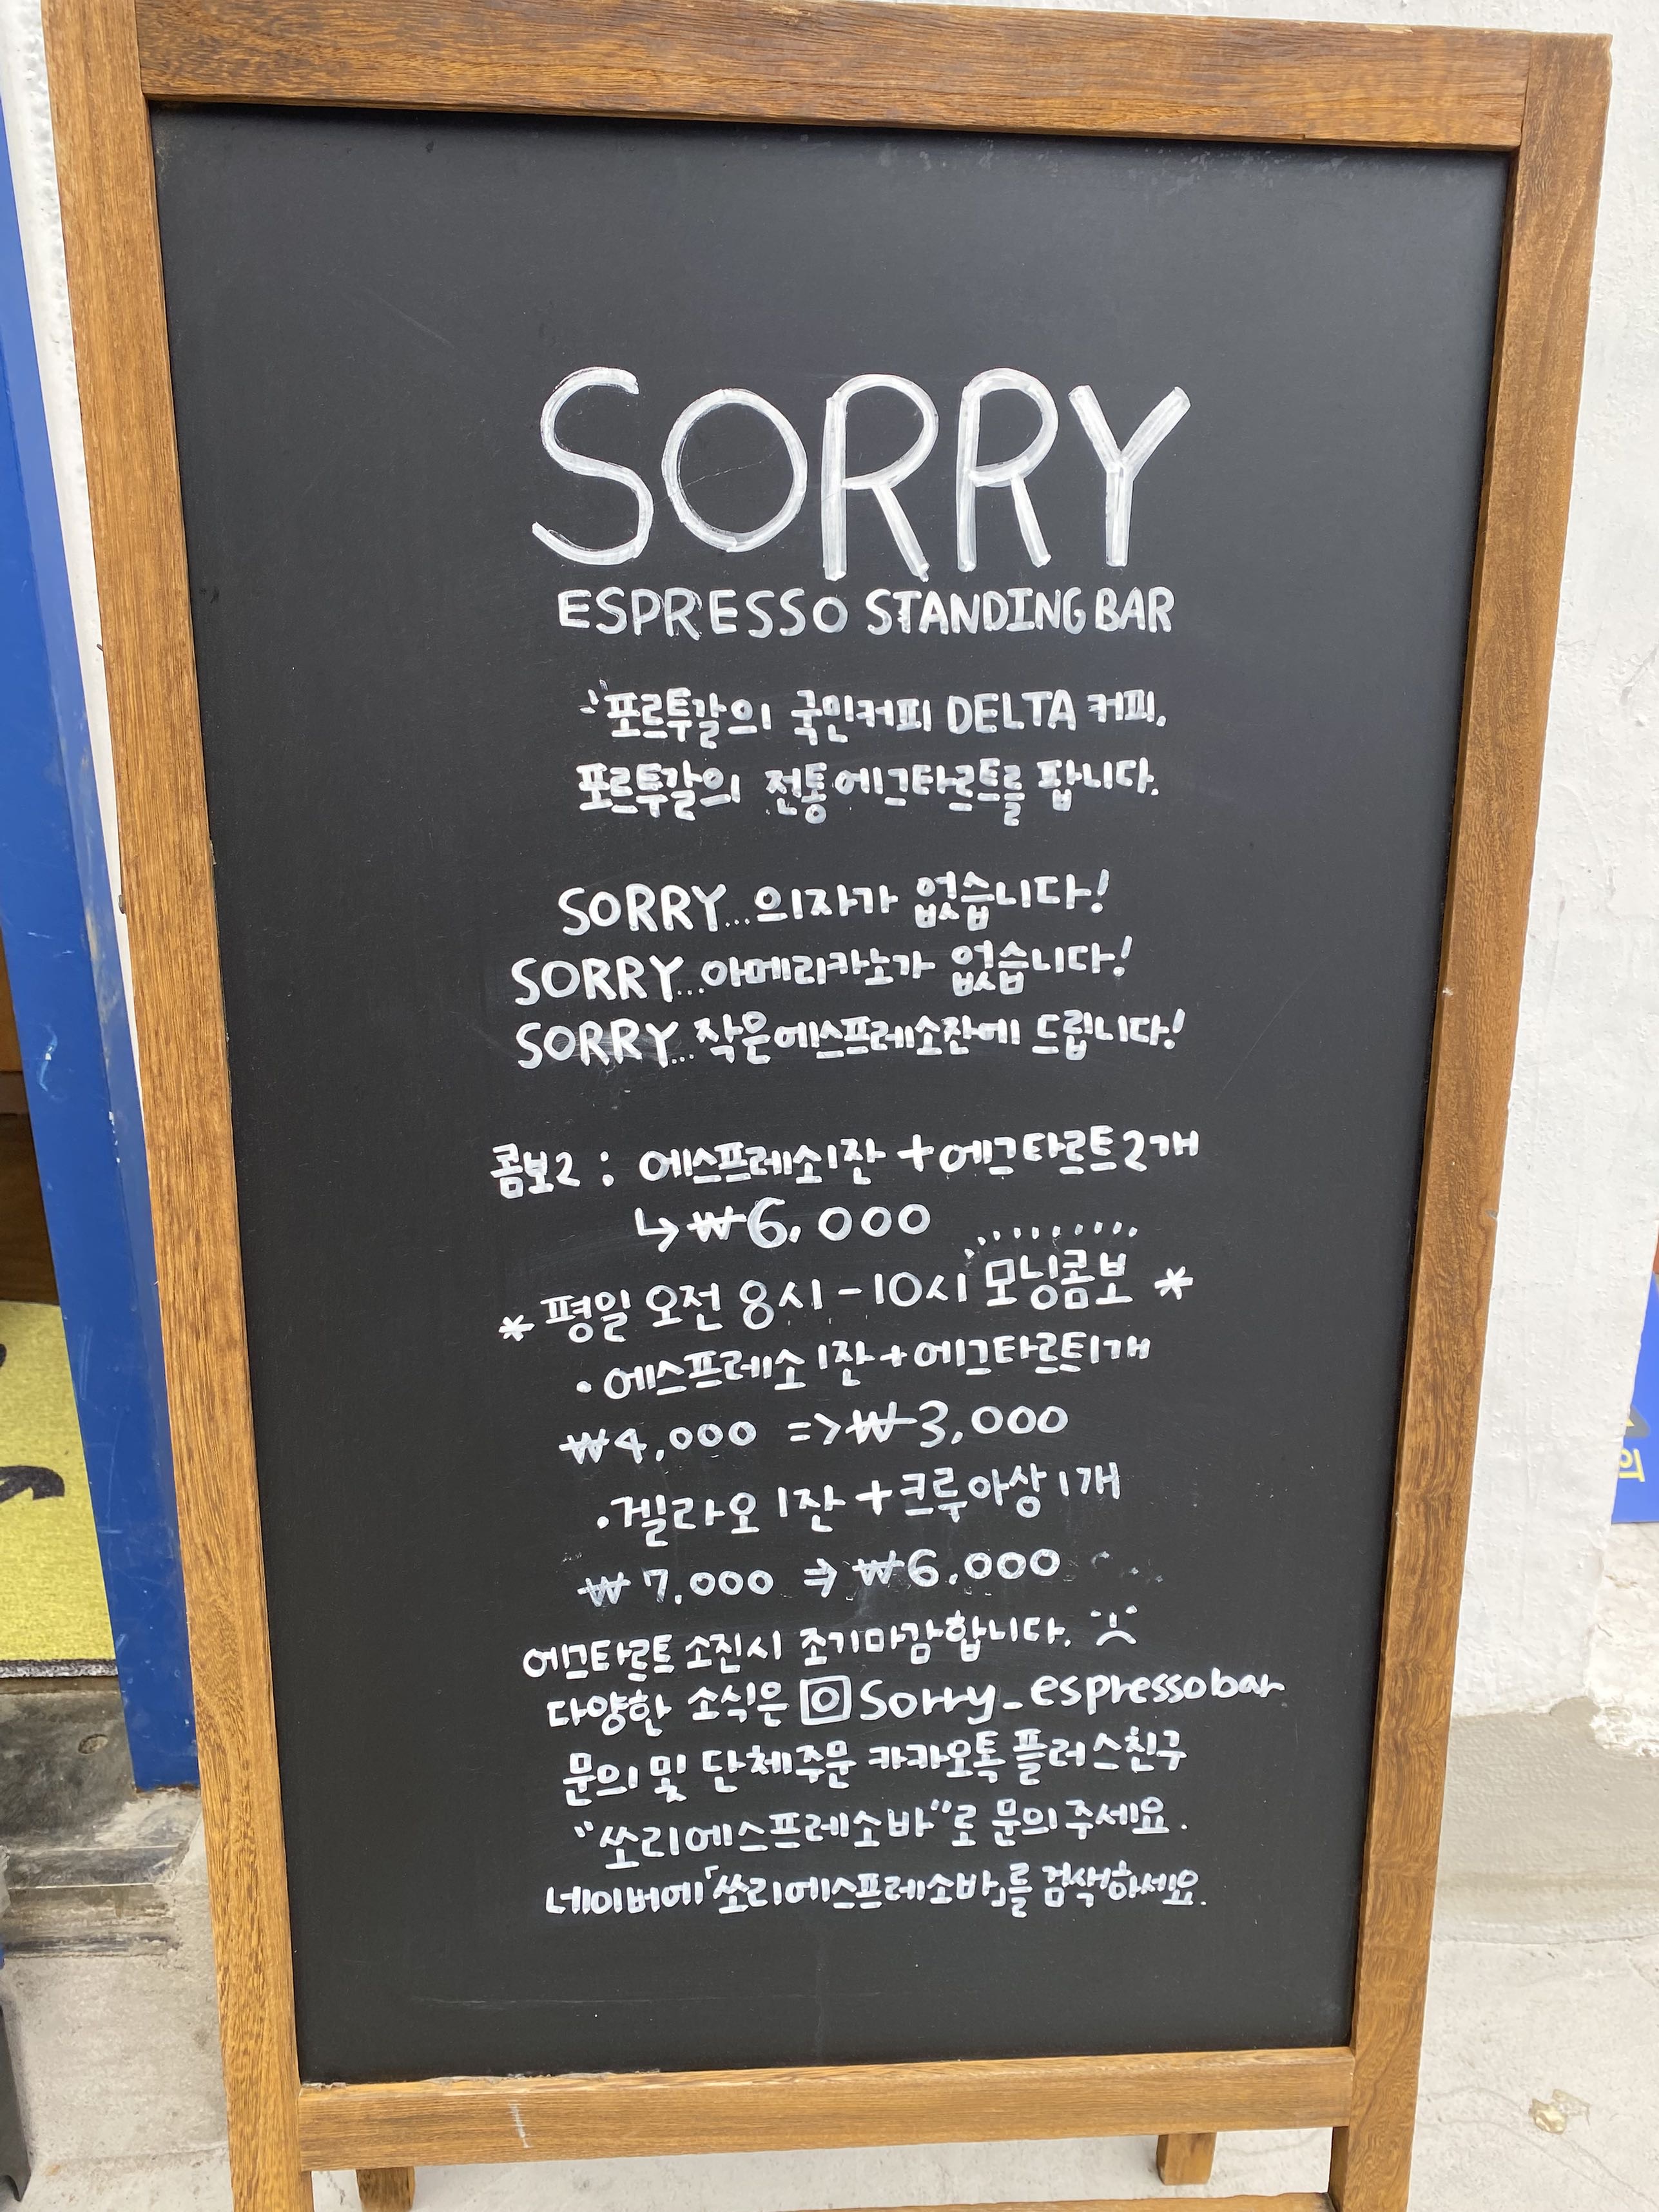 SORRY
ESPRESSO STANDING BAR
포르투갈의 국민커피 DELTA 커피,
포르투갈의 전통에그타르트를 팝니다.
SORRY...의자가 없습니다!
SORRY...아메리카노가 없습니다!
SORRY...작은에스프레소잔에 드립니다!
콤보2 : 에스프레소1잔 +에그타르트2개
↳₩6,000
* 평일 오전 8시-10시 모닝콤보 *
· 에스프레소 1잔+에그타르트1개
₩4,000 => ₩3,000
· 겔라오 1잔 + 크루아상 1개
₩7,000 => ₩6,000
에그타르트 소진시 조기마감합니다.
다양한 소식은 Sorry_espressobar
문의 및 단체주문 카카오톡 플러스친구
"쏘리에스프레소바"로 문의 주세요.
네이버에「쏘리에스프레소바」를 검색하세요.